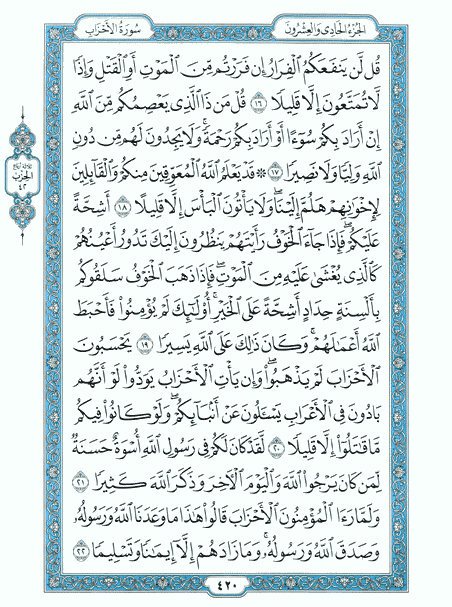 الجزء الحادي والعشرون
سورة الأحزاب
قُل لَّن يَنفَعَكُمُ ٱلْفِرَارُ إِن فَرَرْتُم مِّنَ ٱلْمَوْتِ أَوِ ٱلْقَتْلِ وَإِذًا
لَّا تُمَتَّعُونَ إِلَّا قَلِيلًا ١٦ قُلْ مَن ذَا ٱلَّذِى يَعْصِمُكُم مِّنَ ٱللَّهِ
إِنْ أَرَادَ بِكُمْ سُوٓءًا أَوْ أَرَادَ بِكُمْ رَحْمَةً ۚ وَلَا يَجِدُونَ لَهُم مِّن دُونِ
ٱللَّهِ وَلِيًّا وَلَا نَصِيرًا ١٧ ۞ قَدْ يَعْلَمُ ٱللَّهُ ٱلْمُعَوِّقِينَ مِنكُمْ وَٱلْقَآئِلِينَ
لِإِخْوَٰنِهِمْ هَلُمَّ إِلَيْنَا ۖ وَلَا يَأْتُونَ ٱلْبَأْسَ إِلَّا قَلِيلًا ١٨ أَشِحَّةً
عَلَيْكُمْ ۖ فَإِذَا جَآءَ ٱلْخَوْفُ رَأَيْتَهُمْ يَنظُرُونَ إِلَيْكَ تَدُورُ أَعْيُنُهُمْ
كَٱلَّذِى يُغْشَىٰ عَلَيْهِ مِنَ ٱلْمَوْتِ ۖ فَإِذَا ذَهَبَ ٱلْخَوْفُ سَلَقُوكُم
بِأَلْسِنَةٍ حِدَادٍ أَشِحَّةً عَلَى ٱلْخَيْرِ ۚ أُو۟لَٰٓئِكَ لَمْ يُؤْمِنُوا۟ فَأَحْبَطَ
ٱللَّهُ أَعْمَٰلَهُمْ ۚ وَكَانَ ذَٰلِكَ عَلَى ٱللَّهِ يَسِيرًا ١٩ يَحْسَبُونَ
ٱلْأَحْزَابَ لَمْ يَذْهَبُوا۟ ۖ وَإِن يَأْتِ ٱلْأَحْزَابُ يَوَدُّوا۟ لَوْ أَنَّهُم
بَادُونَ فِى ٱلْأَعْرَابِ يَسْـَٔلُونَ عَنْ أَنۢبَآئِكُمْ ۖ وَلَوْ كَانُوا۟ فِيكُم
مَّا قَٰتَلُوٓا۟ إِلَّا قَلِيلًا ٢٠ لَّقَدْ كَانَ لَكُمْ فِى رَسُولِ ٱللَّهِ أُسْوَةٌ حَسَنَةٌ
لِّمَن كَانَ يَرْجُوا۟ ٱللَّهَ وَٱلْيَوْمَ ٱلْـَٔاخِرَ وَذَكَرَ ٱللَّهَ كَثِيرًا ٢١
وَلَمَّا رَءَا ٱلْمُؤْمِنُونَ ٱلْأَحْزَابَ قَالُوا۟ هَٰذَا مَا وَعَدَنَا ٱللَّهُ وَرَسُولُهُۥ
وَصَدَقَ ٱللَّهُ وَرَسُولُهُۥ ۚ وَمَا زَادَهُمْ إِلَّآ إِيمَٰنًا وَتَسْلِيمًا ٢٢
الحزب
٤٢
٤٢٠